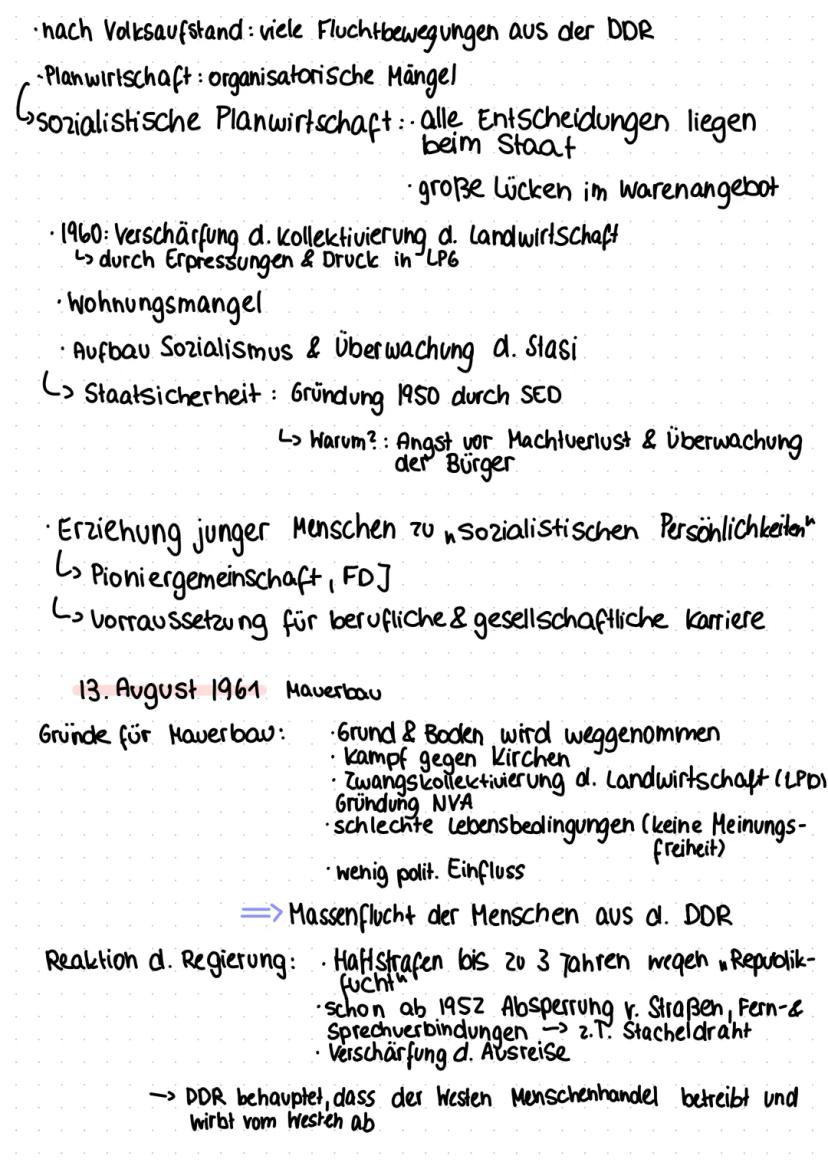 ·nach Volksaufstand: viele Fluchtbewegungen aus der DDR
-Planwirtschaft: organisatorische Mängel
↳sozialistische Planwirtschaft: ·alle Entscheidungen liegen
beim Staat
·große Lücken im Warenangebot
·1960: Verschärfung d. Kollektivierung d. Landwirtschaft
↳ durch Erpressungen & Druck in LPG
·Wohnungsmangel
·Aufbau Sozialismus & Überwachung d. Stasi
↳ Staatsicherheit: Gründung 1950 durch SED
↳ Warum?: Angst vor Machtverlust & Überwachung
der Bürger
·Erziehung junger Menschen zu „sozialistischen Persönlichkeiten"
↳ Pioniergemeinschaft, FDJ
↳ Vorraussetzung für berufliche & gesellschaftliche Karriere
13. August 1961 Mauerbau
Gründe für Mauerbau: ·Grund & Boden wird weggenommen
·Kampf gegen Kirchen
·Zwangskollektivierung d. Landwirtschaft (LPD)
Gründung NVA
·schlechte Lebensbedingungen (keine Meinungs-
freiheit)
·wenig polit. Einfluss
⇒ Massenflucht der Menschen aus d. DDR
Reaktion d. Regierung: ·Haftstrafen bis zu 3 Jahren wegen „Republik-
fucht"
·schon ab 1952 Absperrung v. Straßen, Fern-&
Sprechverbindungen → z.T. Stacheldraht
·Verschärfung d. Ausreise
→ DDR behauptet, dass der Westen Menschenhandel betreibt und
wirbt vom Westen ab